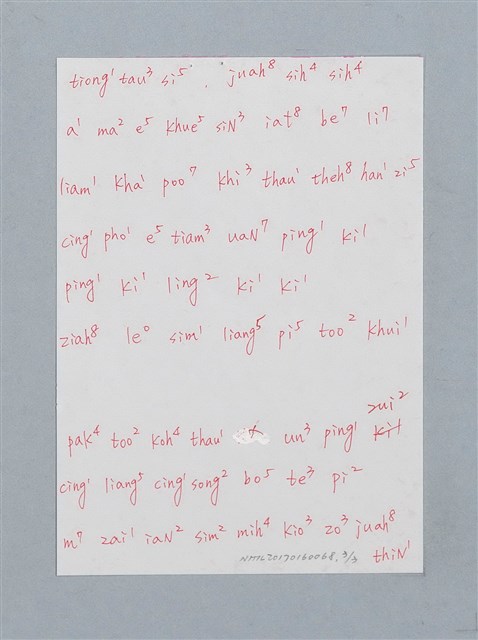 tiong¹ tau³ si⁵, juah⁸ sih⁴ sih⁴
a¹ ma² e⁵ khue⁵ siN³ iat⁸ be⁷ li⁷
liam¹ kha¹ poo⁷ khi³ thau¹ theh⁸ han¹ zi⁵
cing¹ pho¹ e⁵ tiam³ uaN⁷ ping¹ ki¹
ping¹ ki¹ ling² ki¹ ki¹
ziah⁸ le⁰ sim¹ liang⁵ pi⁵ too² khui¹
zui²
pak⁴ too² koh⁴ thau¹ un³ ping¹
cing¹ liang⁵ cing¹ song² bo⁵ te³ pi²
m⁷ zai¹ iaN² sim² mih⁴ kio³ zo³ juah⁸
thiN¹
NMTL20170160068, 3/3